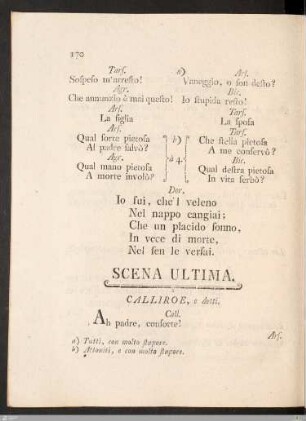 170
Tars. a) Ars.
Sospeso m'arresto! Vaneggio, o son desto?
Agr. Bic.
Che annunzio è mai questo! Io stupida resto!
Ars. Tars.
La figlia La sposa
Ars. Tars.
Qual sorte pietosa b) Che stella pietosa
Al padre salvò? A me conservò?
Agr. à 4. Bic.
Qual mano pietosa Qual destra pietosa
A morte involò? In vita serbò?
Dor.
Io fui, che'l veleno
Nel nappo cangiai;
Che un placido sonno,
In vece di morte,
Nel sen le versai.
SCENA ULTIMA.
CALLIROE, e detti.
Call.
Ah padre, consorte!
Ars.
a) Tutti, con molto stupore.
b) Attoniti, e con molto stupore.